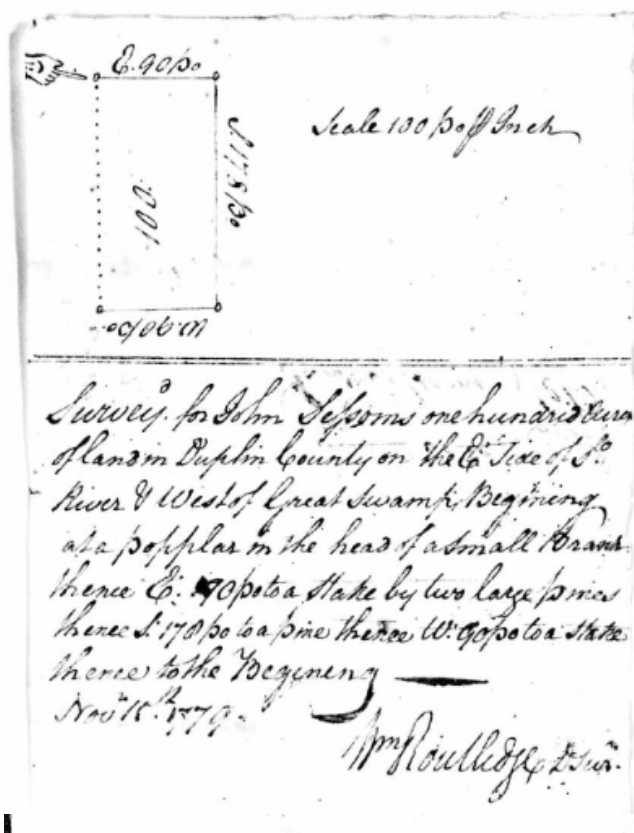 E. 90 po
Scale 100 po ⅌ Inch
S. 178 Po
100
W. 90 po.
Survey.d for John Sessoms one hundred Acres
of land in Duplin County on the E.t Side of S.o
River & West of Great Swamp, Begining
at a popplar in the head of a small Branch
thence E. 90 po to a Stake by two large pines
thence S. 178 po to a pine thence W. 90 po to a stake
thence to the Begining
Nov.r 15.th 1779.
Wm Routledge D. Sur.r